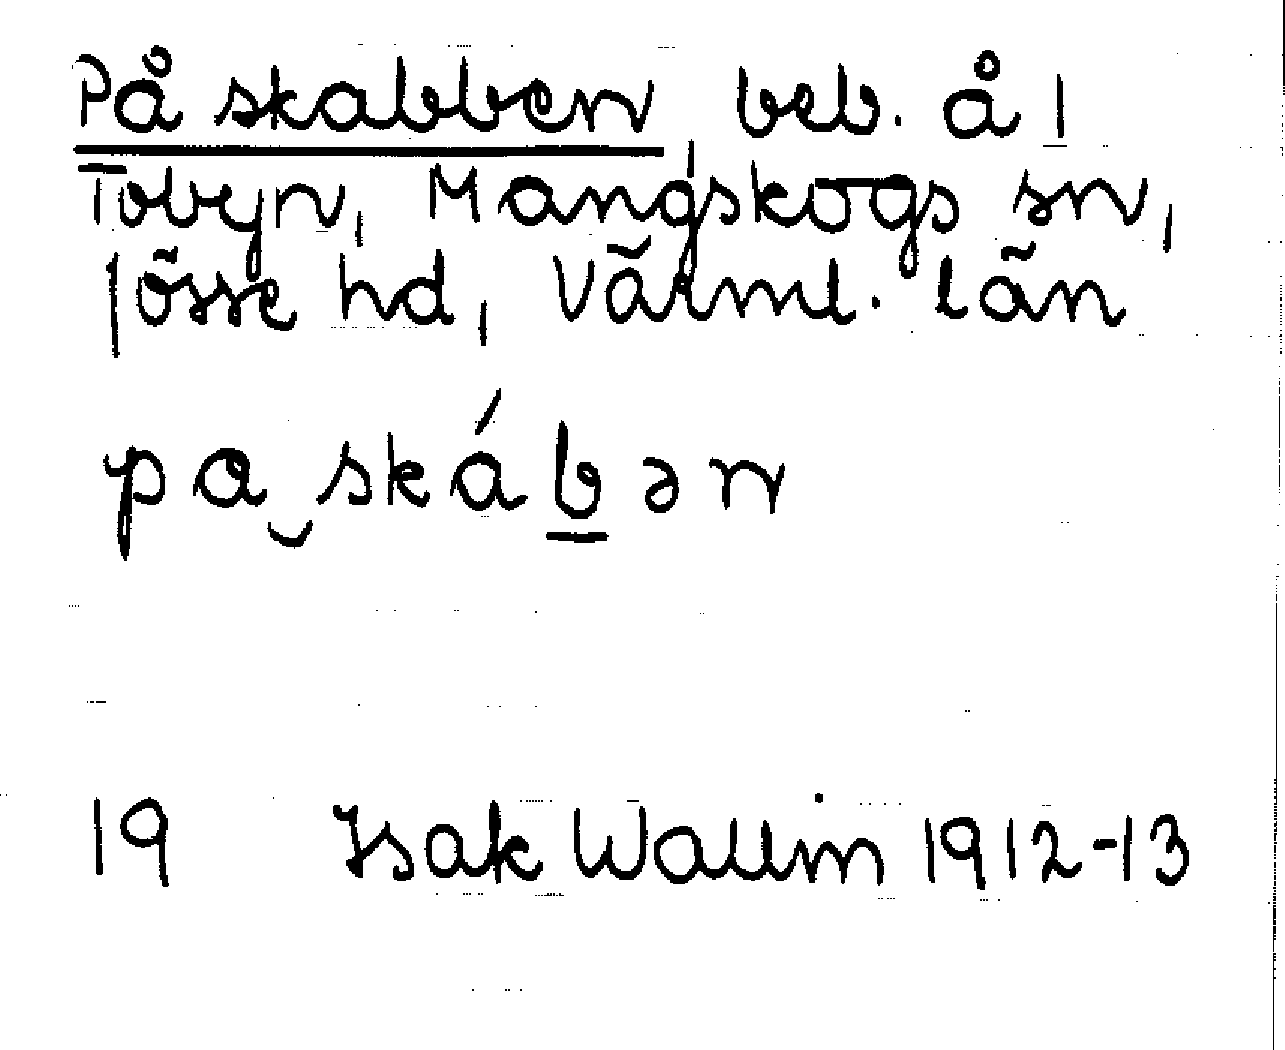 På skabben, beb. å 1
Tobyn, Mangskogs sn,
Jösse hd, Värml. län
pa‿skábən
19 Isak Wallin 1912-13